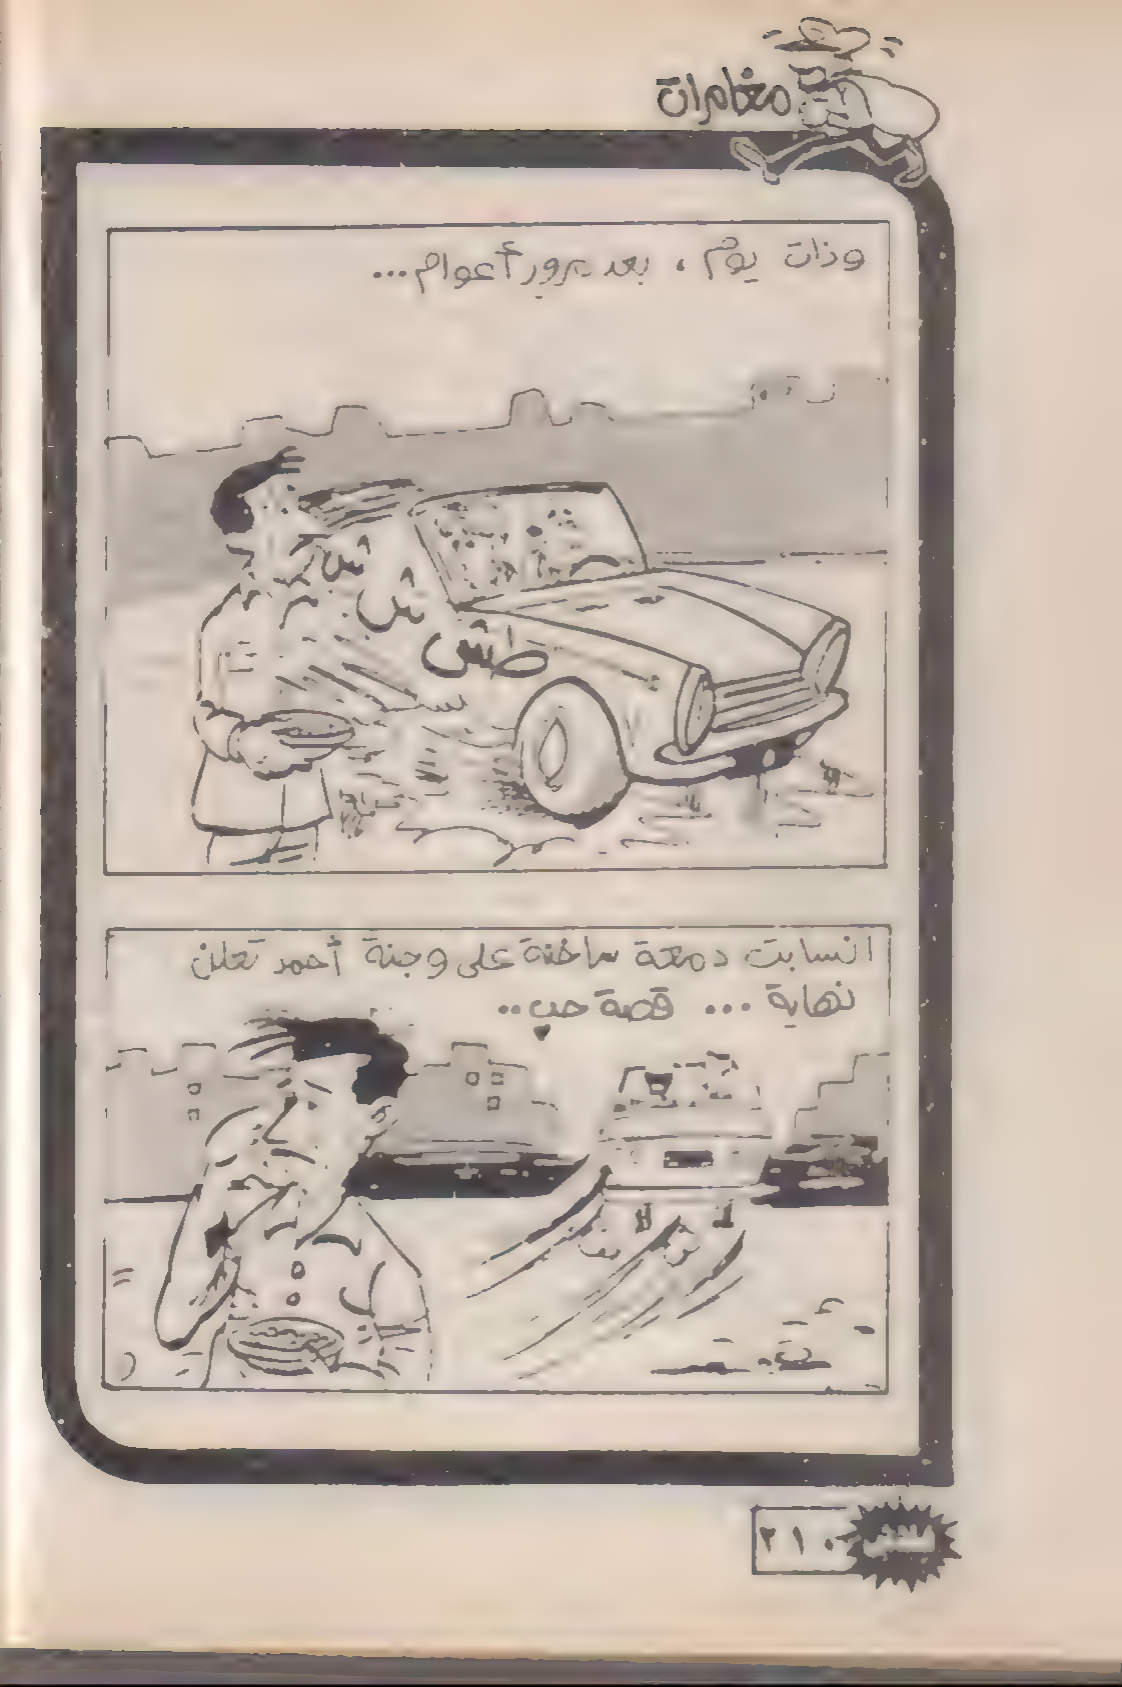 مغامرات
وذات يوم ، بعد مرور أعوام...
طش ش ش
انسابت دمعة ساخنة على وجنة أحمر تعلن
نهاية ... قصة حب..
٢١٠